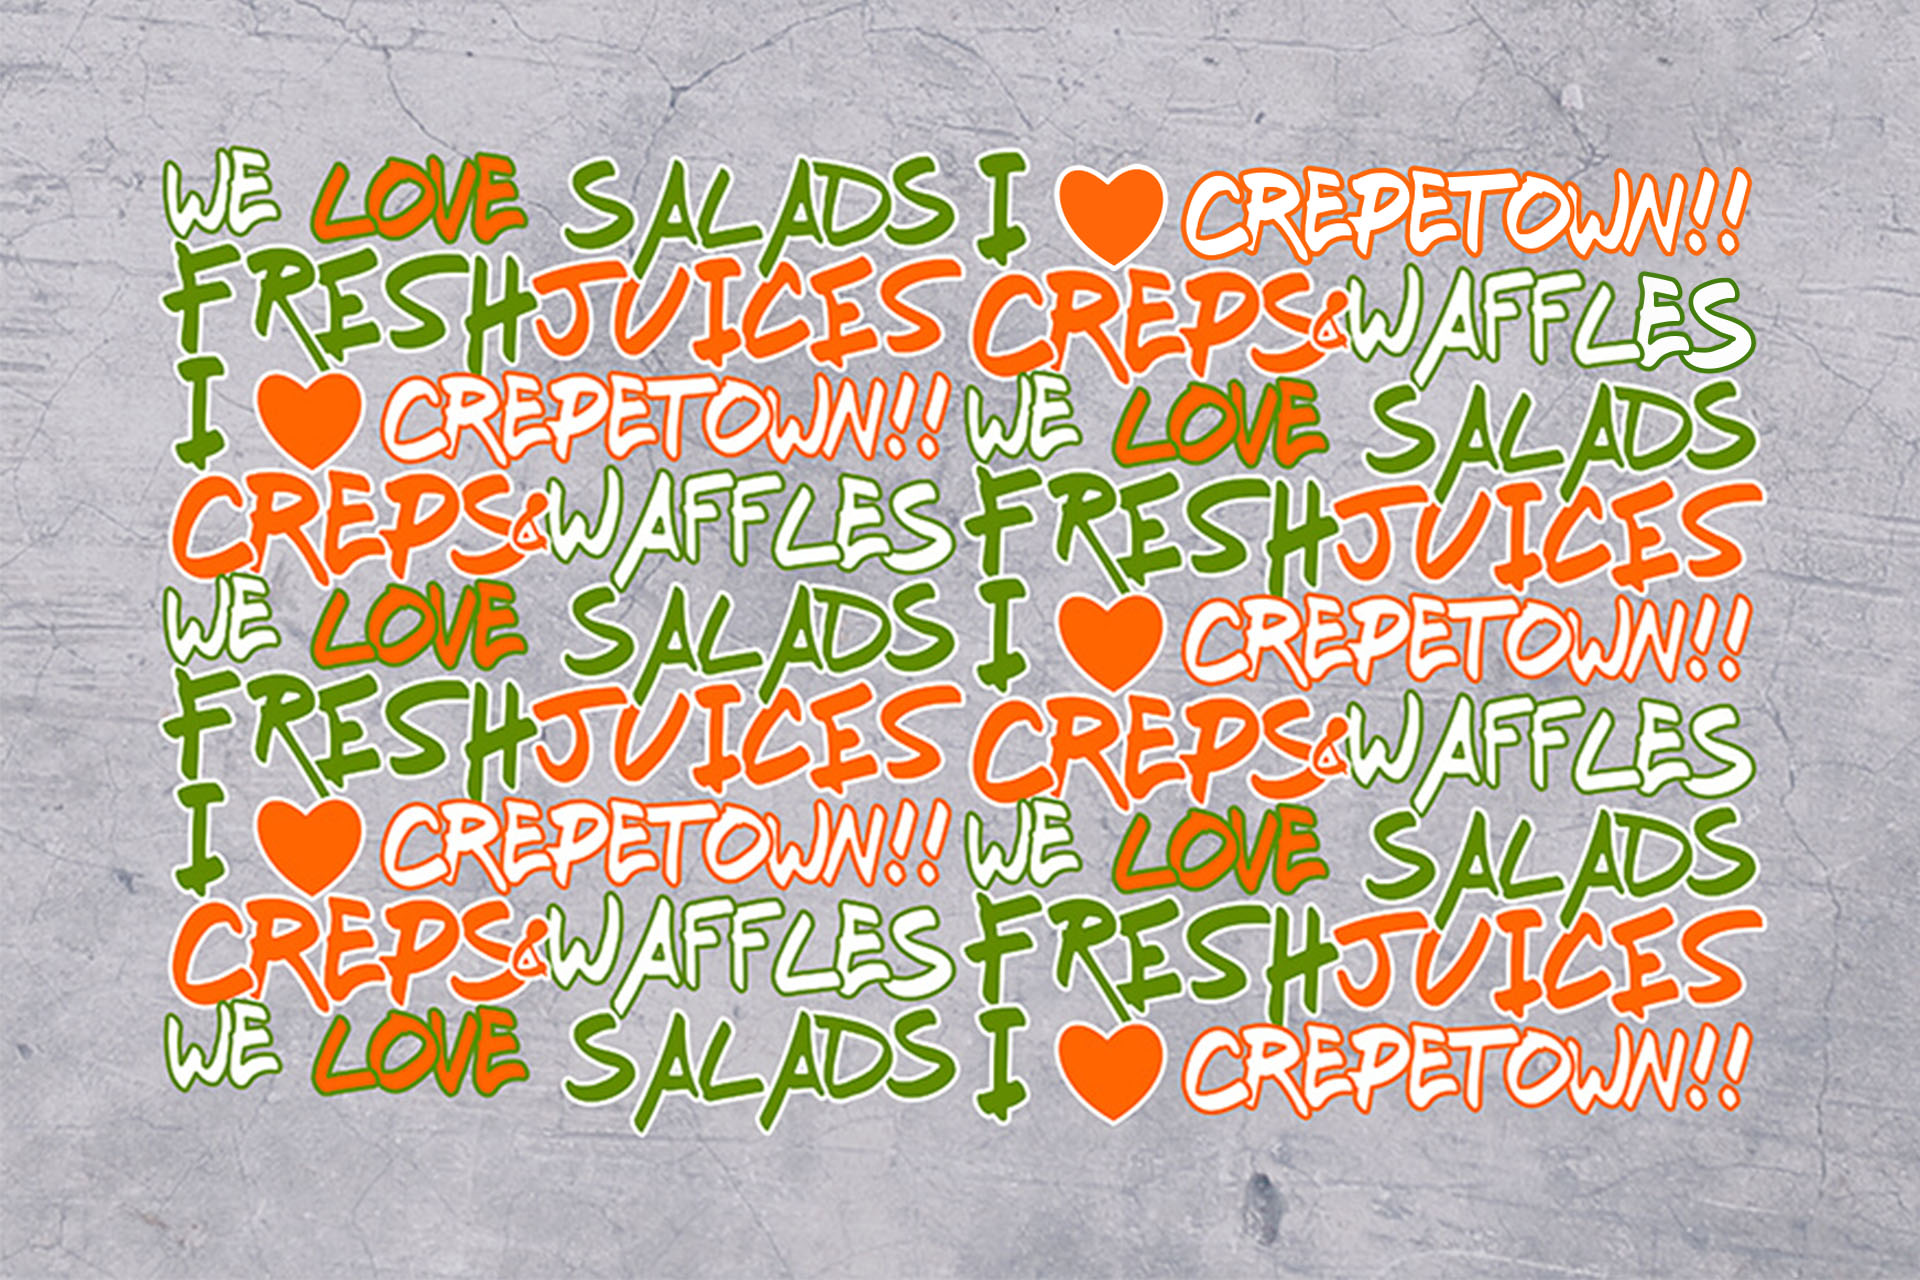 WE LOVE SALADS I ♥ CREPETOWN!!
FRESH JUICES CREPS & WAFFLES
I ♥ CREPETOWN!! WE LOVE SALADS
CREPS & WAFFLES FRESH JUICES
WE LOVE SALADS I ♥ CREPETOWN!!
FRESH JUICES CREPS & WAFFLES
I ♥ CREPETOWN!! WE LOVE SALADS
CREPS & WAFFLES FRESH JUICES
WE LOVE SALADS I ♥ CREPETOWN!!